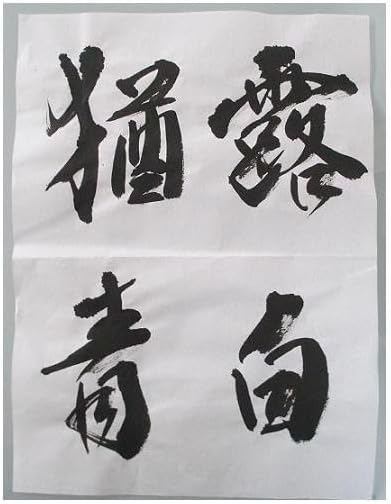 露白
猶青